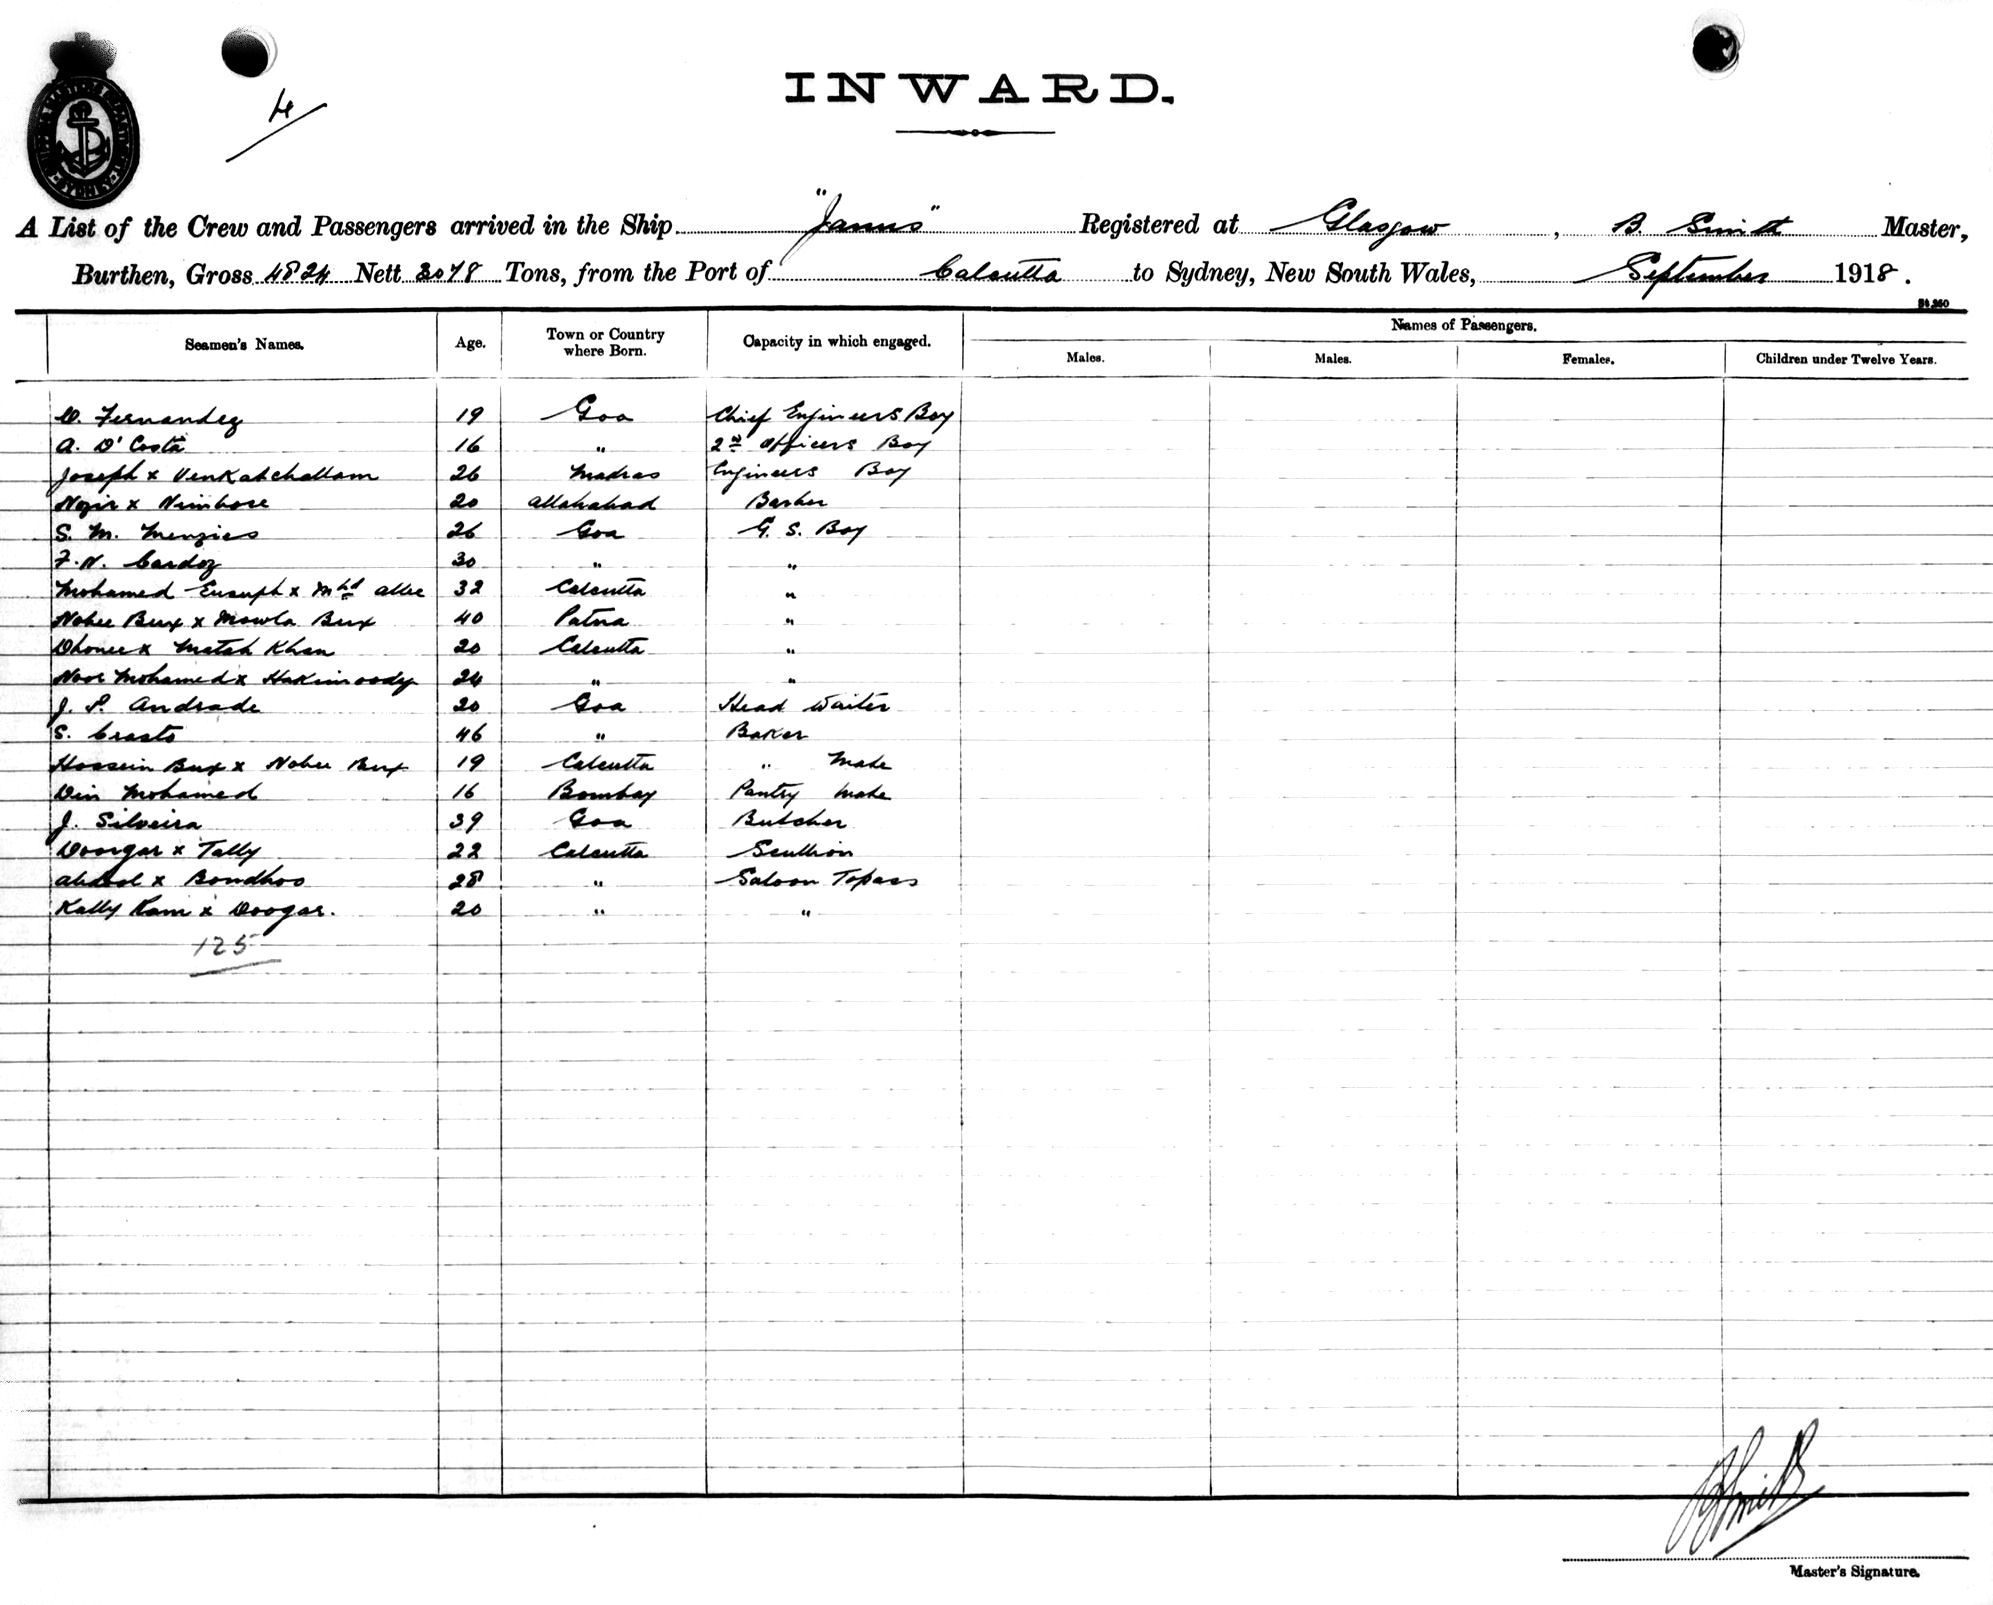 4
INWARD.
A List of the Crew and Passengers arrived in the Ship "Janus" Registered at Glasgow, B. Smith Master,
Burthen, Gross 4824 Nett 3078 Tons, from the Port of Calcutta to Sydney, New South Wales, September 1918.
Seamen's Names. Age. Town or Country where Born. Capacity in which engaged. Names of Passengers.
Males. Males. Females. Children under Twelve Years.
D. Fernandez 19 Goa Chief Engineers Boy
A. D'Costa 16 " 2nd Officers Boy
Joseph x Venkatchallam 26 Madras Engineers Boy
Nozir x Nimbose 20 Allahabad Barber
S. M. Menzies 26 Goa G. S. Boy
F. N. Cardoz 30 " "
Mohamed Eusuph x Mhd Allee 32 Calcutta "
Nobee Bux x Mowla Bux 40 Patna "
Dhonee x Matab Khan 20 Calcutta "
Noor Mohamed x Hakimoody 24 " "
J. P. Andrade 20 Goa Head Waiter
S. Crasto 46 " Baker
Hossein Bux x Nobee Bux 19 Calcutta " Mate
Din Mohamed 16 Bombay Pantry Mate
J. Silveira 39 Goa Butcher
Doorgar x Tally 22 Calcutta Scullion
Abdool x Bondhoo 28 " Saloon Topass
Kally Ram x Doogar. 20 " "
125
Master's Signature.